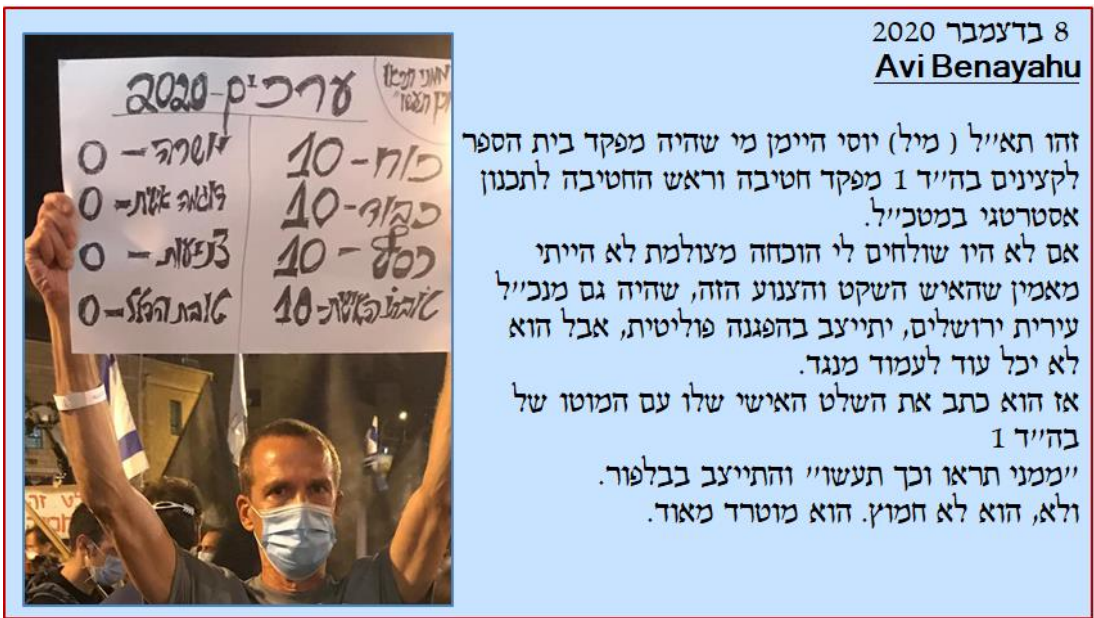 8 בדצמבר 2020
Avi Benayahu
זהו תא״ל ( מיל) יוסי היימן מי שהיה מפקד בית הספר
לקצינים בה״ד 1 מפקד חטיבה וראש החטיבה לתכנון
אסטרטגי במטכ״ל.
אם לא היו שולחים לי הוכחה מצולמת לא הייתי
מאמין שהאיש השקט והצנוע הזה, שהיה גם מנכ״ל
עירית ירושלים, יתייצב בהפגנה פוליטית, אבל הוא
לא יכל עוד לעמוד מנגד.
אז הוא כתב את השלט האישי שלו עם המוטו של
בה״ד 1
״ממני תראו וכך תעשו״ והתייצב בבלפור.
ולא, הוא לא חמוץ. הוא מוטרד מאוד.
ממני תראו
וכן תעשו"
ערכים-2020
כוח-10
כבוד-10
כסף-10
טובתו האישית-10
יושרה-0
דוגמה אישית-0
צניעות-0
טובת הכלל-0